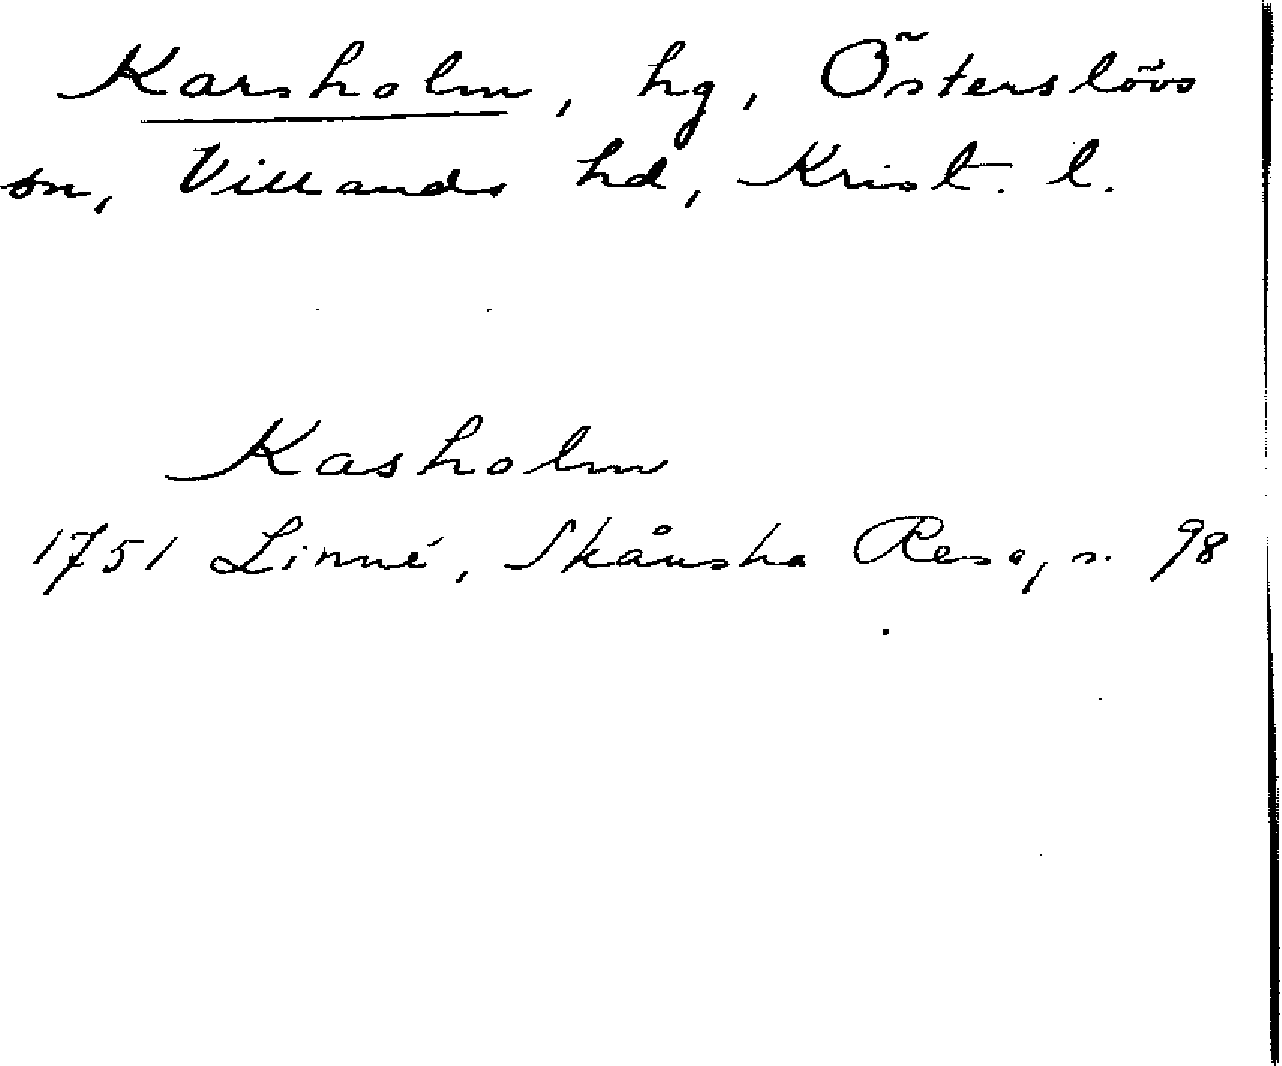 Karsholm, hg, Österslövs
sn, Villands hd, Krist. l.
Kasholm
1751 Linné, Skånska Resa, s. 98